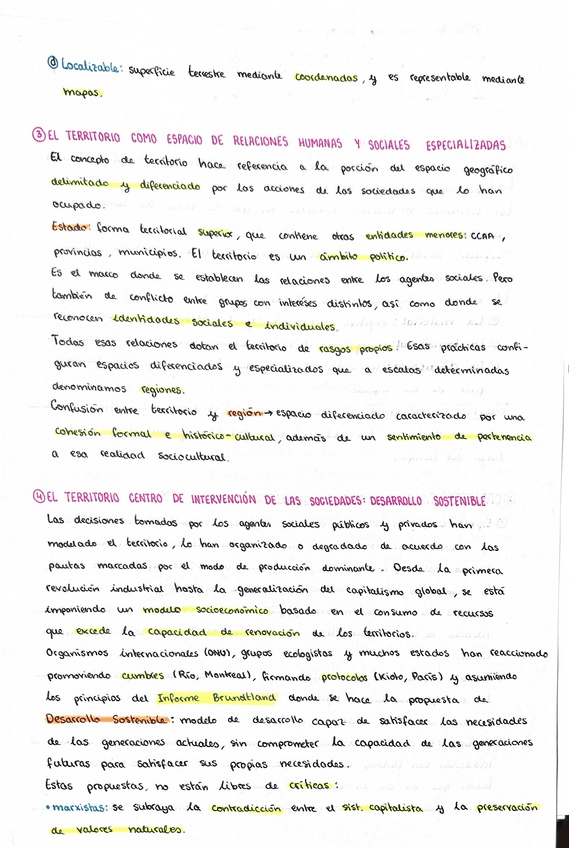 ⓓ Localizable: superficie terrestre mediante coordenadas, y es representable mediante
mapas.
③ EL TERRITORIO COMO ESPACIO DE RELACIONES HUMANAS Y SOCIALES ESPECIALIZADAS
El concepto de territorio hace referencia a la porción del espacio geográfico
delimitado y diferenciado por las acciones de las sociedades que lo han
ocupado.
Estado: forma territorial superior, que contiene otras entidades menores: CCAA,
provincias, municipios. El territorio es un ámbito político.
Es el marco donde se establecen las relaciones entre los agentes sociales. Pero
también de conflicto entre grupos con intereses distintos, así como donde se
reconocen identidades sociales e individuales.
Todas esas relaciones dotan el territorio de rasgos propios. Esas prácticas confi-
guran espacios diferenciados y especializados que a escalas determinadas
denominamos regiones.
Confusión entre territorio y región → espacio diferenciado caracterizado por una
cohesión formal e histórico-cultural, además de un sentimiento de pertenencia
a esa realidad sociocultural.
④ EL TERRITORIO CENTRO DE INTERVENCIÓN DE LAS SOCIEDADES: DESARROLLO SOSTENIBLE
Las decisiones tomadas por los agentes sociales públicos y privados han
modelado el territorio, lo han organizado o degradado de acuerdo con las
pautas marcadas por el modo de producción dominante. Desde la primera
revolución industrial hasta la generalización del capitalismo global, se está
imponiendo un modelo socioeconómico basado en el consumo de recursos
que excede la capacidad de renovación de los territorios.
Organismos internacionales (ONU), grupos ecologistas y muchos estados han reaccionado
promoviendo cumbres (Río, Montreal), firmando protocolos (Kioto, París) y asumiendo
los principios del Informe Brundtland donde se hace la propuesta de
Desarrollo Sostenible: modelo de desarrollo capaz de satisfacer las necesidades
de las generaciones actuales, sin comprometer la capacidad de las generaciones
futuras para satisfacer sus propias necesidades.
Estas propuestas, no están libres de críticas:
• marxistas: se subraya la contradicción entre el sist. capitalista y la preservación
de valores naturales.